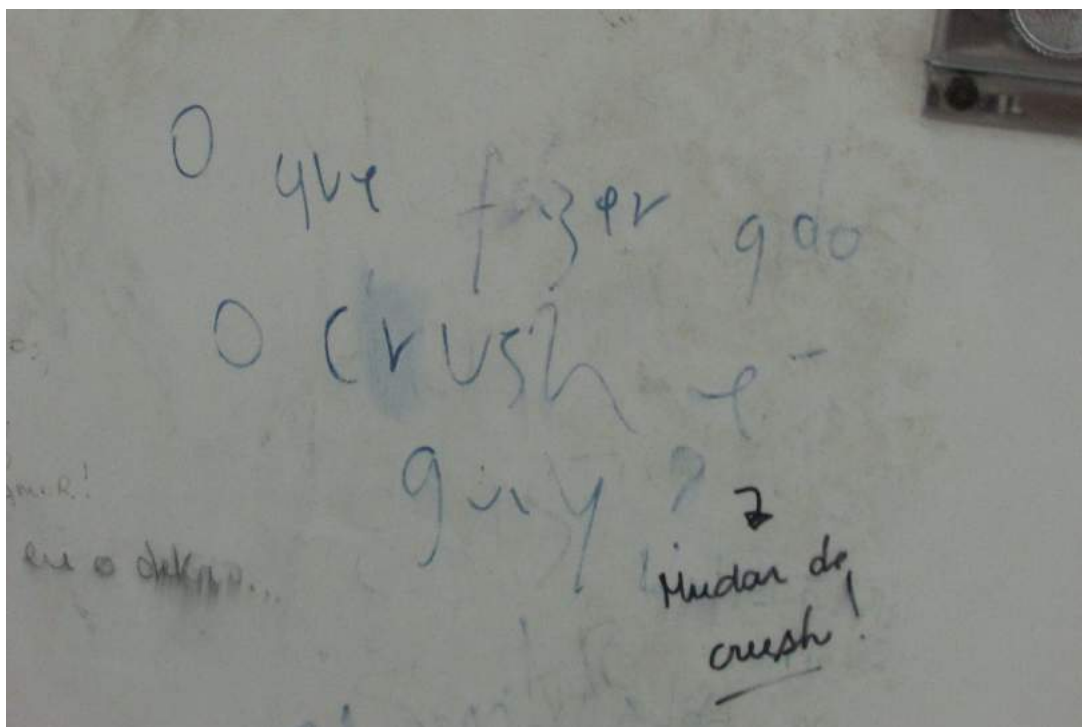 O que fazer qdo
O crush é
gay?
Mudar de
crush!
eu o